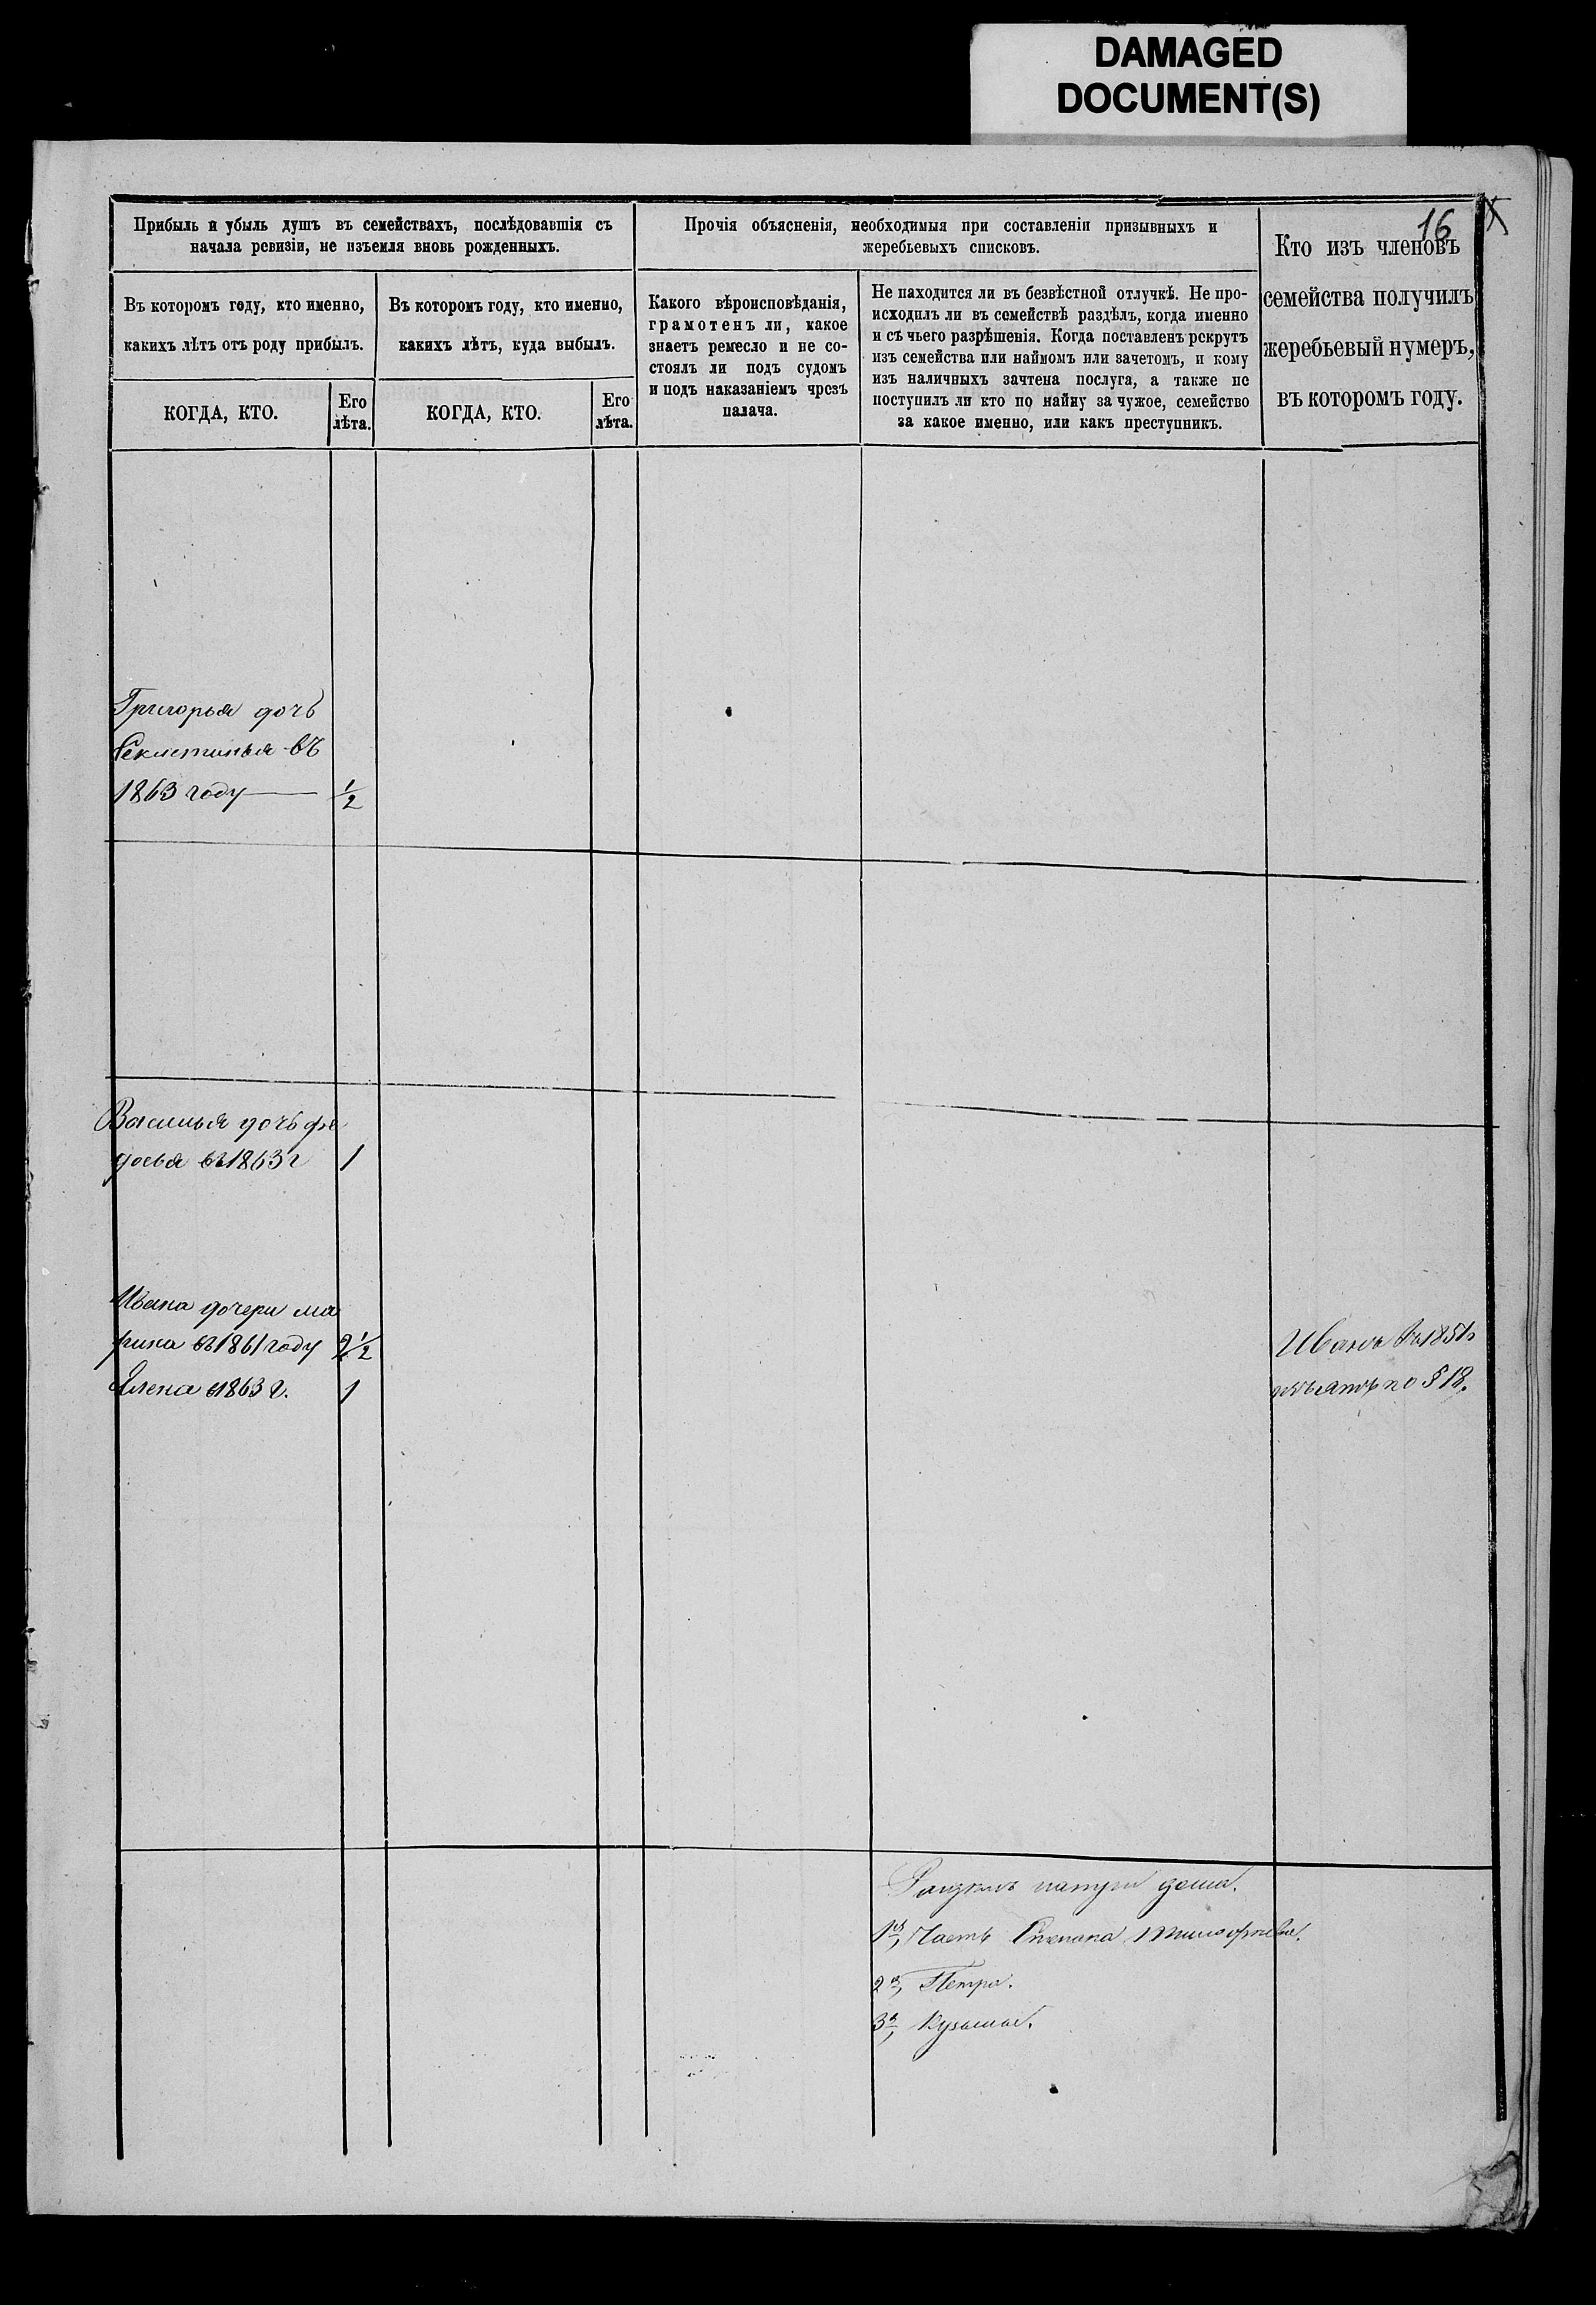 DAMAGED
DOCUMENT(S)
16
Прибыль и убыль душъ въ семействахъ, послѣдовавшія съ
начала ревизіи, не изъемля вновь рожденныхъ.
Въ которомъ году, кто именно,
какихъ лѣтъ отъ роду прибылъ.
КОГДА, КТО.
Его
лѣта.
Въ которомъ году, кто именно,
какихъ лѣтъ, куда выбылъ.
КОГДА, КТО.
Его
лѣта.
Прочія объясненія, необходимыя при составленіи призывныхъ и
жеребьевыхъ списковъ.
Какого вѣроисповѣданія,
грамотенъ ли, какое
знаетъ ремесло и не со-
стоялъ ли подъ судомъ
и подъ наказаніемъ чрезъ
палача.
Не находится ли въ безвѣстной отлучкѣ. Не про-
исходилъ ли въ семействѣ раздѣлъ, когда именно
и съ чьего разрѣшенія. Когда поставленъ рекрутъ
изъ семейства или наймомъ или зачетомъ, и кому
изъ наличныхъ зачтена послуга, а также не
поступилъ ли кто по найму за чужое, семейство
за какое именно, или какъ преступникъ.
Кто изъ членовъ
семейства получилъ
жеребьевый нумеръ,
въ которомъ году.
Григорья дочь
Секлетинья въ
1863 году 1/2
Василья дочь фе
досья въ 1863 г 1
Ивана дочери ма
рина въ 1861 году 2 1/2
Алена 1863 г. 1
Иванъ въ 1851
изъятъ по § 18.
1я, Часть Степана Тимофеева.
2я, Петра.
3я, Кузьма.